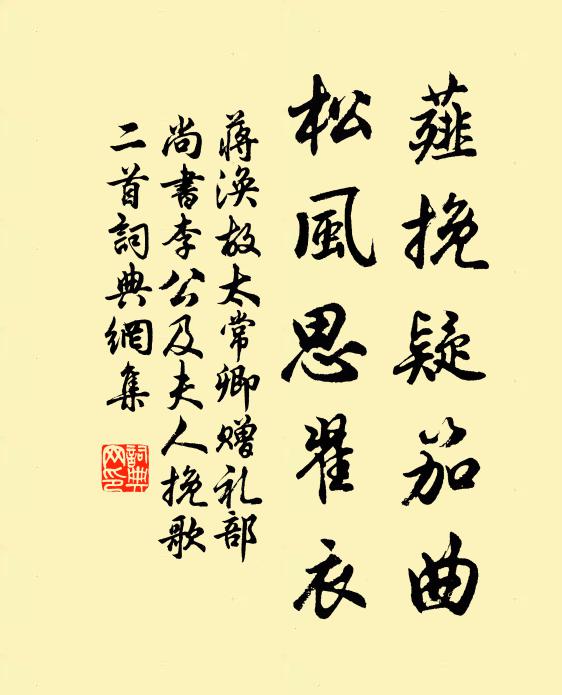 薤挽疑笳曲
松風思翟衣
蔣渙故太常卿赠礼部
尚書李公及夫人挽歌
二首詞典網集
詞典
网印